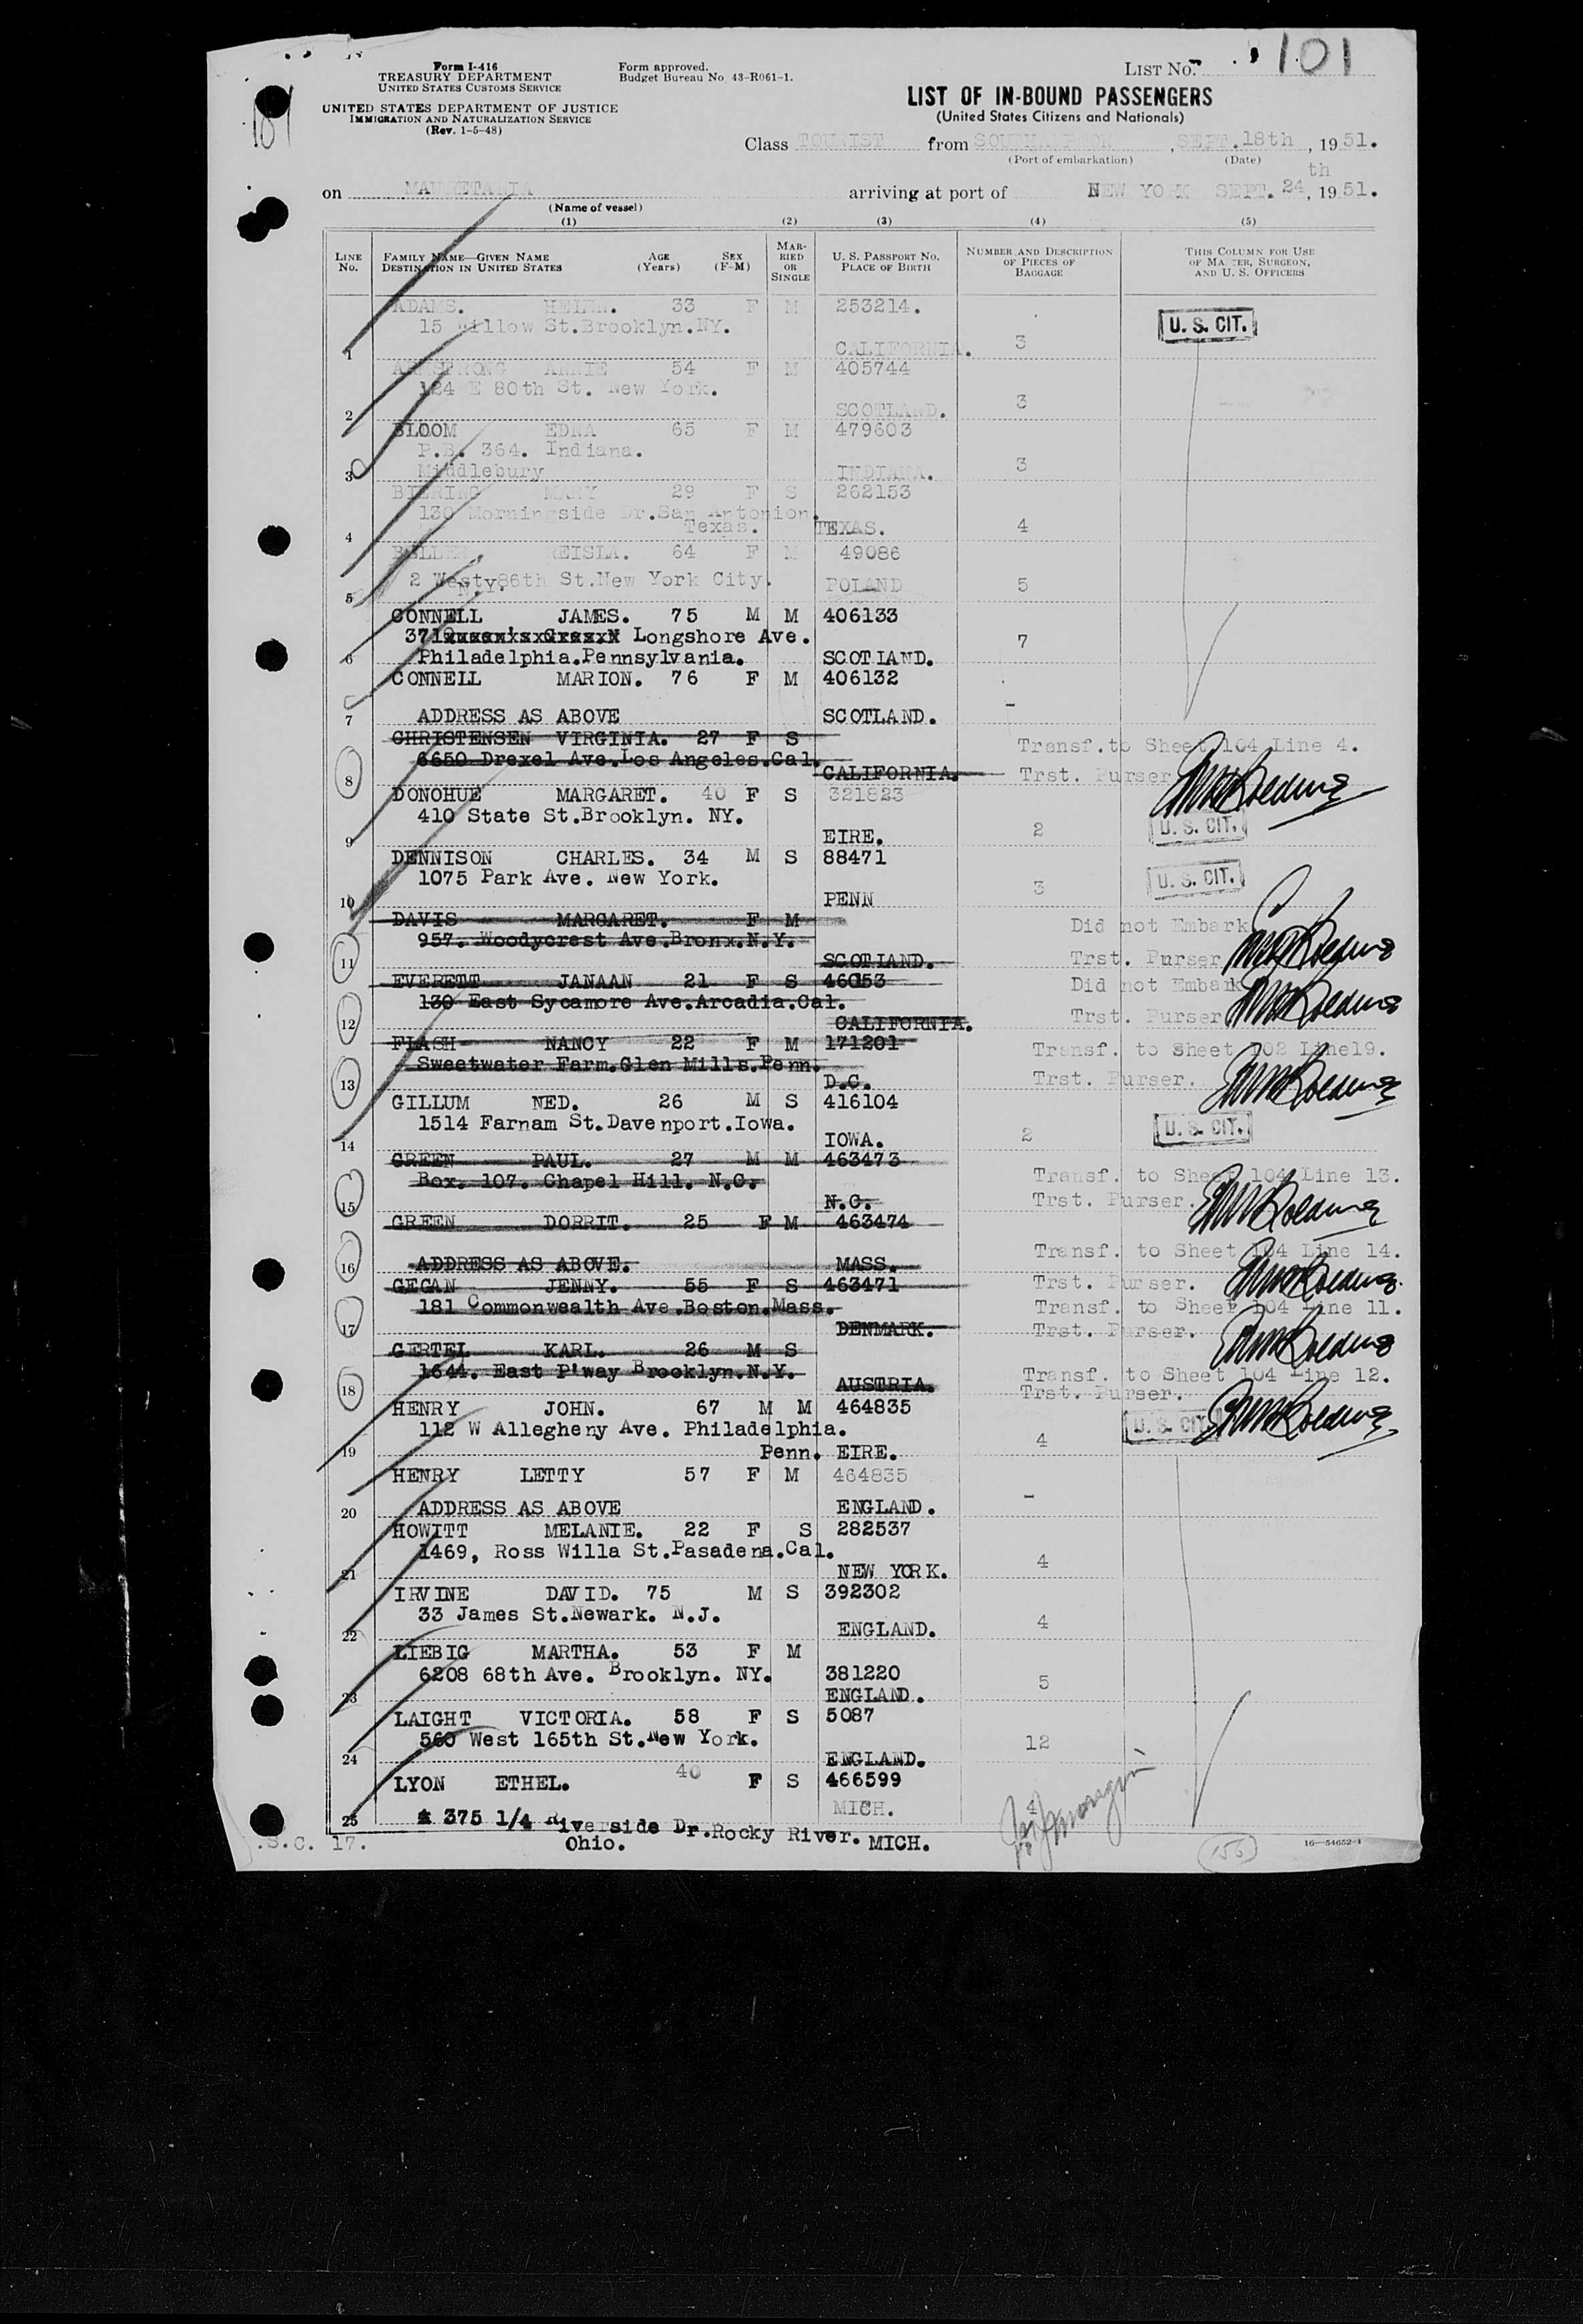 Form I-416
TREASURY DEPARTMENT
UNITED STATES CUSTOMS SERVICE
UNITED STATES DEPARTMENT OF JUSTICE
IMMIGRATION AND NATURALIZATION SERVICE
(Rev. 1-5-48)
Form approved.
Budget Bureau No. 43-R061-1.
LIST No. 101
LIST OF IN-BOUND PASSENGERS
(United States Citizens and Nationals)
Class TOURIST from SOUTHAMPTON, SEPT. 18th, 1951.
(Port of embarkation) (Date)
on MAURETANIA arriving at port of NEW YORK SEPT. 24th, 1951.
(Name of vessel)
(1) (2) (3) (4) (5)
LINE No. FAMILY NAME—GIVEN NAME DESTINATION IN UNITED STATES AGE (Years) SEX (F-M) MARRIED OR SINGLE U. S. PASSPORT No. PLACE OF BIRTH NUMBER AND DESCRIPTION OF PIECES OF BAGGAGE THIS COLUMN FOR USE OF MASTER, SURGEON, AND U. S. OFFICERS
ADAMS. HELEN. 33 F M 253214.
15 Willow St.Brooklyn.NY. U. S. CIT.
1 CALIFORNIA. 3
ARMSTRONG ANNIE 54 F M 405744
124 E 80th St. New York.
2 SCOTLAND. 3
BLOOM EDNA 65 F M 479603
P.B. 364. Indiana.
3 Middlebury INDIANA. 3
MARY 29 F S 262153
130 Morningside Dr.San Antonion.
4 Texas. TEXAS. 4
REISLA. 64 F M 49086
2 West 86th St.New York City.
5 N.Y. POLAND 5
CONNELL JAMES. 75 M M 406133
371 Longshore Ave.
6 Philadelphia.Pennsylvania. SCOTLAND. 7
CONNELL MARION. 76 F M 406132
7 ADDRESS AS ABOVE SCOTLAND. -
CHRISTENSEN VIRGINIA. 27 F S Transf.to Sheet 104 Line 4.
6650 Drexel Ave.Los Angeles.Cal.
8 CALIFORNIA. Trst. Purser
DONOHUE MARGARET. 40 F S 321823
410 State St.Brooklyn. NY. U. S. CIT.
9 EIRE. 2
DENNISON CHARLES. 34 M S 88471
1075 Park Ave. New York. U. S. CIT.
10 PENN 3
DAVIS MARGARET. F M Did not Embark
957. Woodycrest Ave.Bronx.N.Y.
11 SCOTLAND. Trst. Purser
EVERETT JANAAN 21 F S 46053 Did not Embark
130 East Sycamore Ave.Arcadia.Cal.
12 CALIFORNIA. Trst. Purser
FLASH NANCY 22 F M 171201 Transf. to Sheet 102 Line19.
Sweetwater Farm.Glen Mills.Penn.
13 D.C. Trst. Purser.
GILLUM NED. 26 M S 416104
1514 Farnam St.Davenport.Iowa. U. S. CIT.
14 IOWA. 2
GREEN PAUL. 27 M M 463473 Transf. to Sheet 104 Line 13.
Box. 107. Chapel Hill. N.C.
15 N.C. Trst. Purser.
GREEN DORRIT. 25 F M 463474
16 ADDRESS AS ABOVE. MASS. Transf. to Sheet 104 Line 14.
Trst. Purser.
GEGAN JENNY. 55 F S 463471
181 Commonwealth Ave.Boston.Mass. Transf. to Sheet 104 Line 11.
17 DENMARK. Trst. Purser.
GERTEL KARL. 26 M S
1644. East P'way Brooklyn.N.Y. Transf. to Sheet 104 Line 12.
18 AUSTRIA. Trst. Purser.
HENRY JOHN. 67 M M 464835
112 W Allegheny Ave. Philadelphia. U. S. CIT.
19 Penn. EIRE. 4
HENRY LETTY 57 F M 464835
20 ADDRESS AS ABOVE ENGLAND. -
HOWITT MELANIE. 22 F S 282537
1469, Ross Willa St.Pasadena.Cal.
21 NEW YORK. 4
IRVINE DAVID. 75 M S 392302
33 James St.Newark. N.J.
22 ENGLAND. 4
LIEBIG MARTHA. 53 F M
6208 68th Ave. Brooklyn. NY. 381220
23 ENGLAND. 5
LAIGHT VICTORIA. 58 F S 5087
560 West 165th St.New York.
24 ENGLAND. 12
LYON ETHEL. 40 F S 466599
25 MICH. 4
375 1/4 Riverside Dr.Rocky River. MICH.
Ohio.
.S.C. 17.
155
16—54652-1